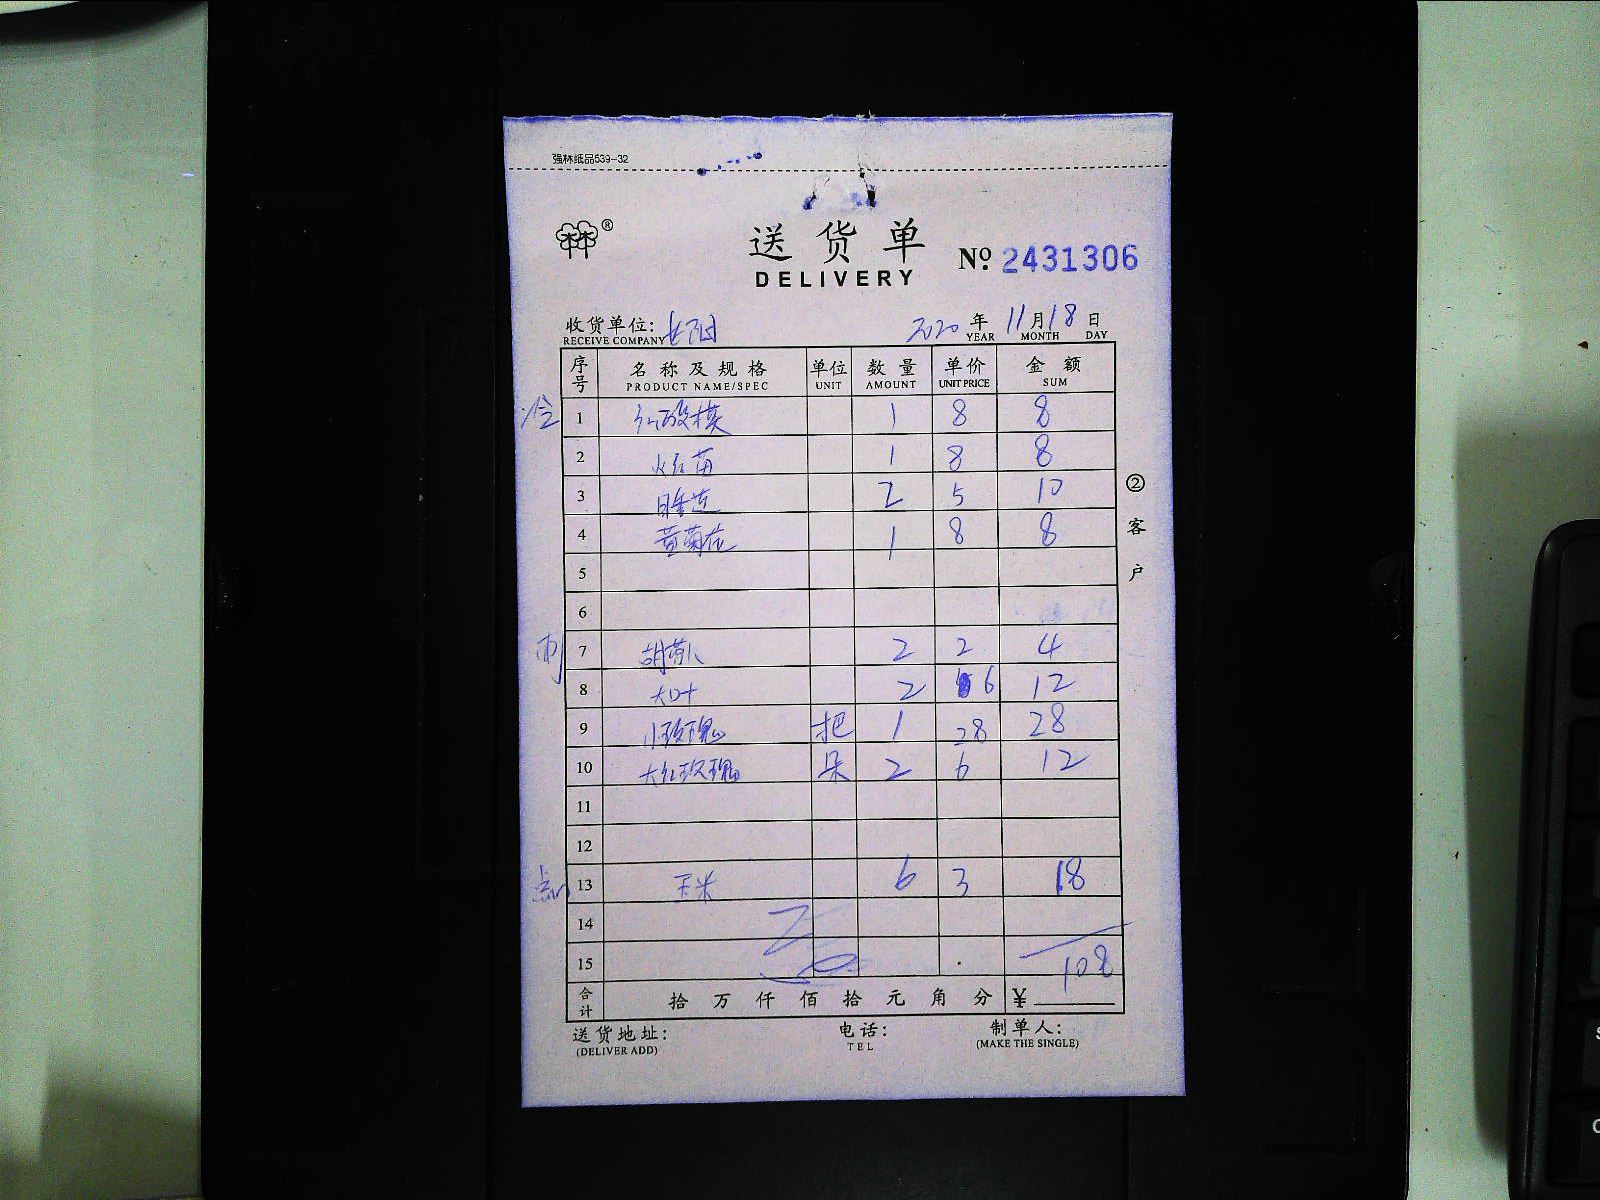 强林纸品539-32
送货单
DELIVERY
Nº 2431306
收货单位: 2020 年 11 月 18 日
RECEIVE COMPANY YEAR MONTH DAY
序号 名称及规格 单位 数量 单价 金额
PRODUCT NAME/SPEC UNIT AMOUNT UNIT PRICE SUM
冷 1 1 8 8
2 1 8 8
3 2 5 10
4 黄菊花 1 8 8
5
6
7 2 2 4
8 大叶 2 6 12
9 小玫瑰 把 1 28 28
10 大红玫瑰 朵 2 6 12
11
12
点心 13 玉米 6 3 18
14
15 108
合计 拾 万 仟 佰 拾 元 角 分 ¥
送货地址: 电话: 制单人:
(DELIVER ADD) TEL (MAKE THE SINGLE)
② 客户